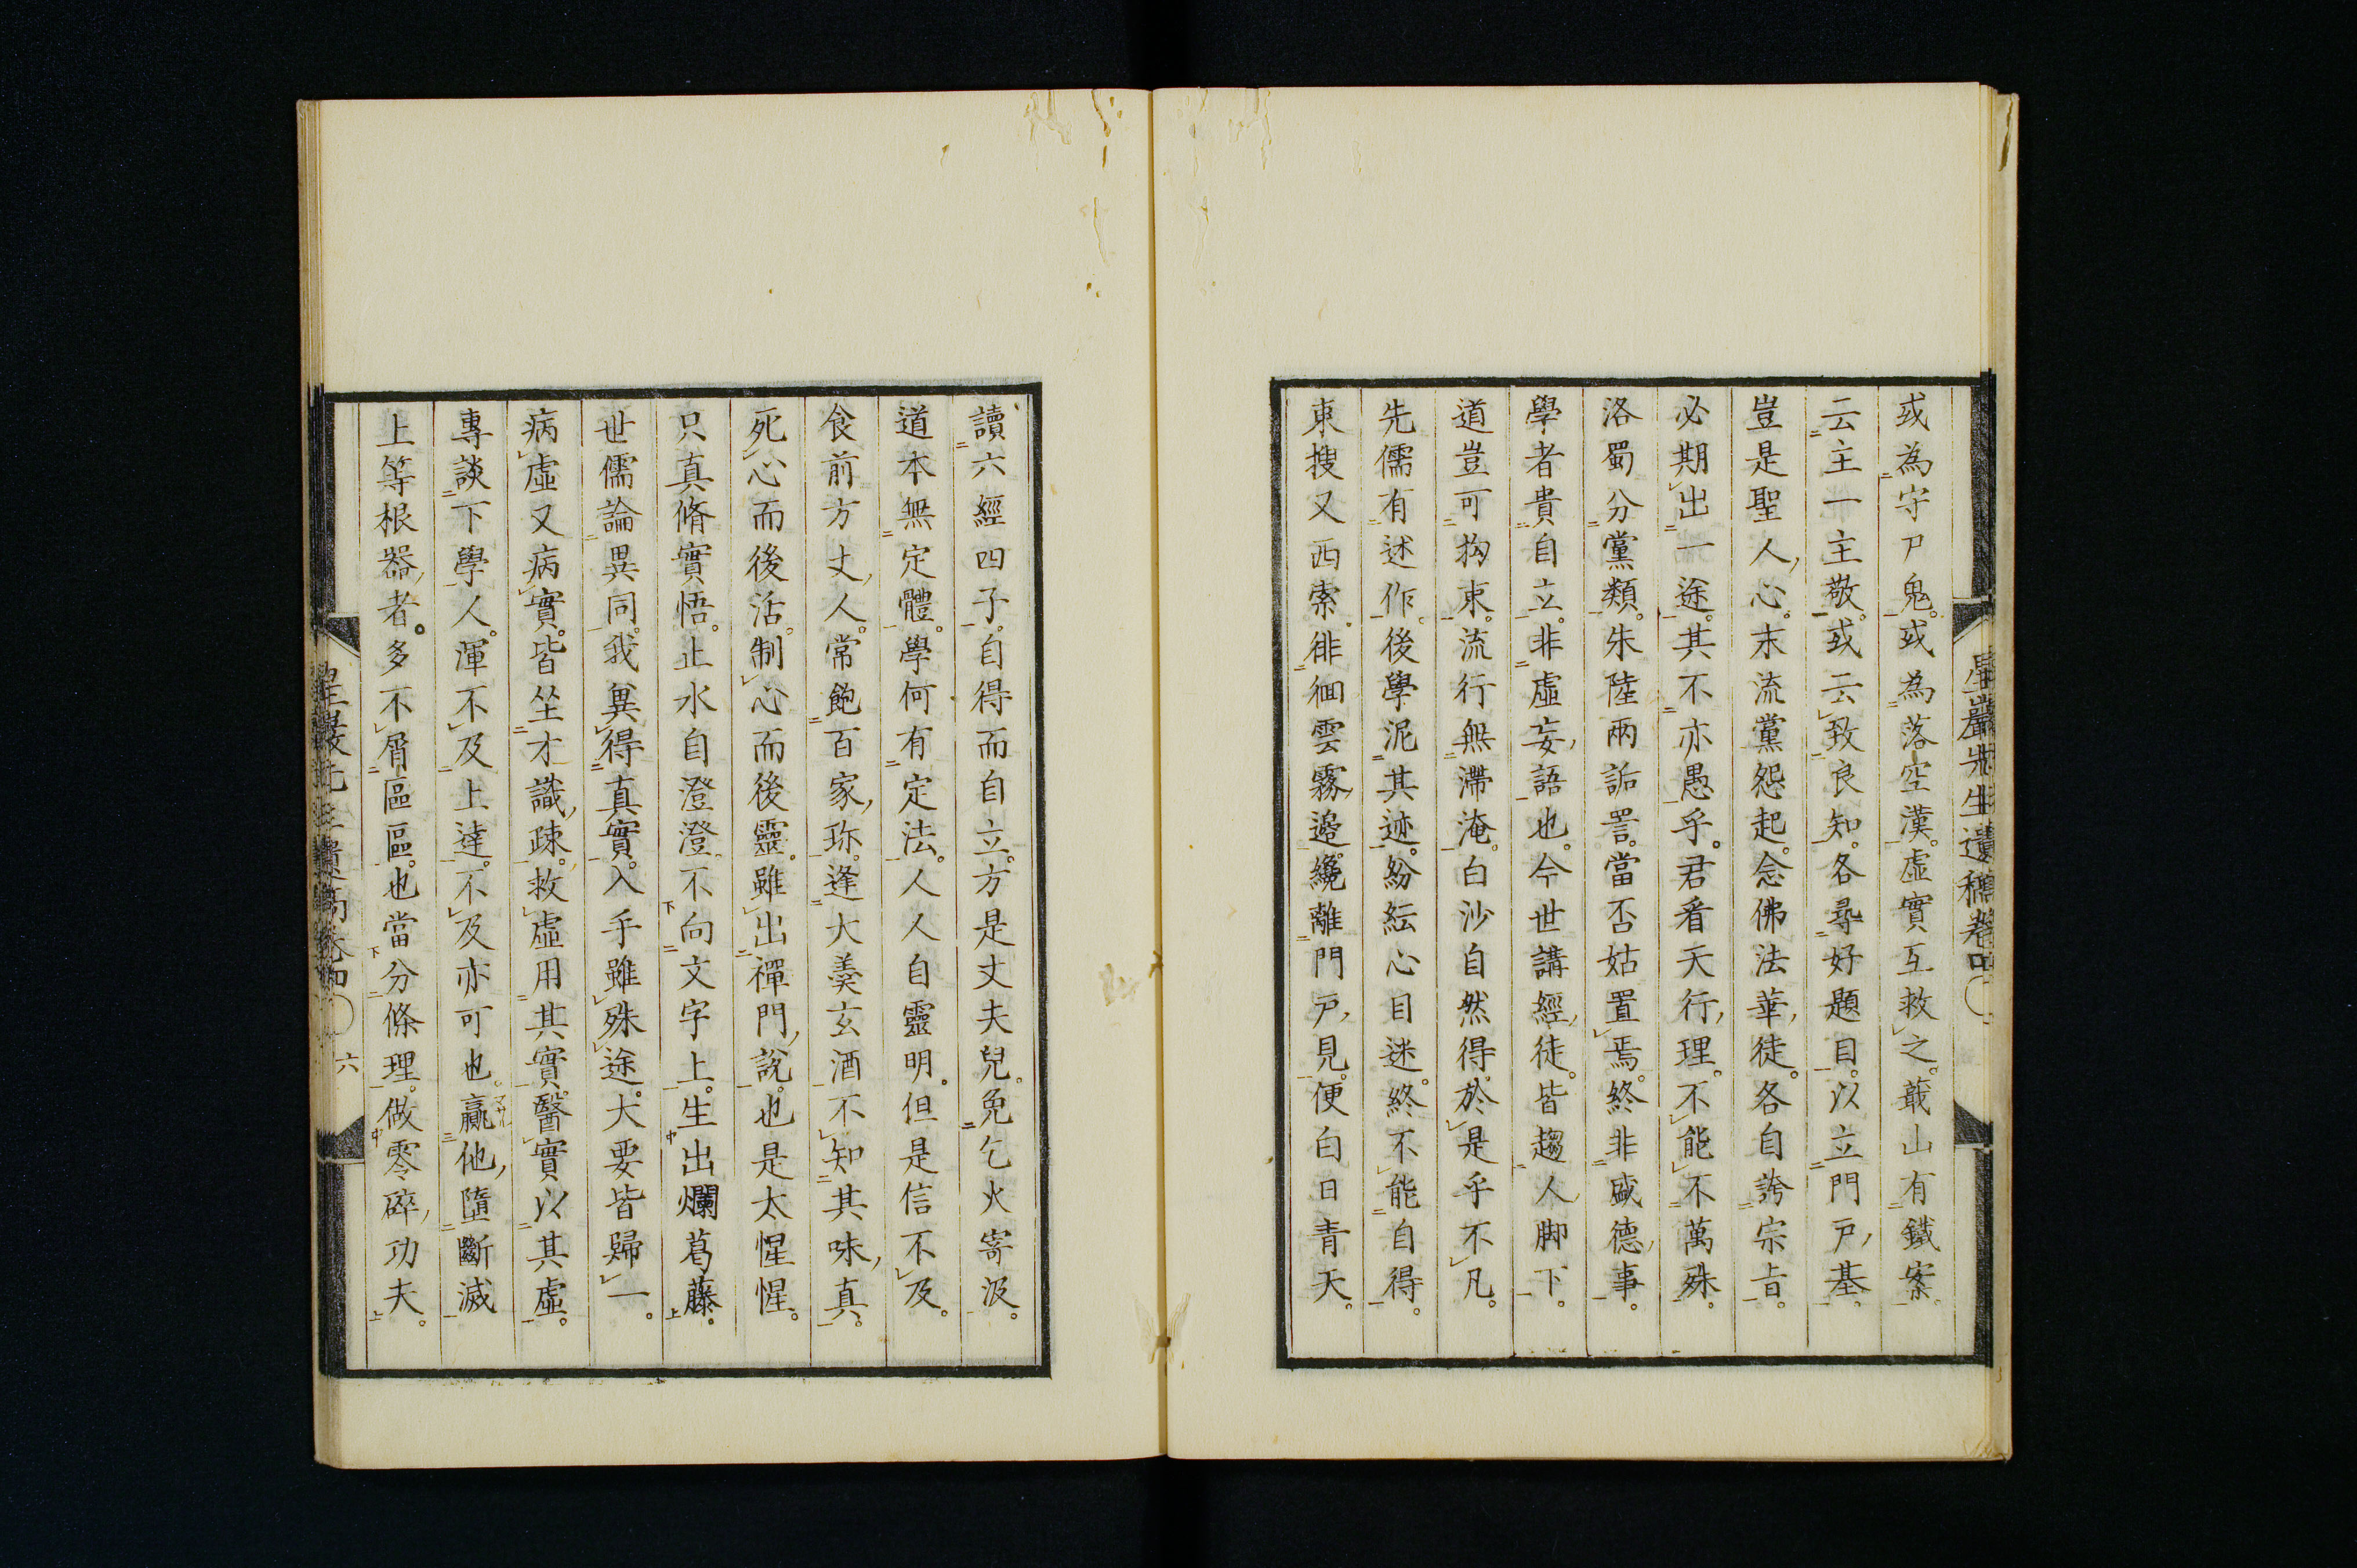 星巖先生遺稿卷四
或為守尸鬼。或為落空漢。虛實互救之。蕺山有鐵案。
云主一主敬。或云致良知。各尋好題目。以立門戸基。
豈是聖人心。末流黨怨起。念佛法華徒。各自誇宗旨。
必期出一途。其不亦愚乎。君看天行理。不能不萬殊。
洛蜀分黨類。朱陸兩詬詈。當否姑置焉。終非盛德事。
學者貴自立。非虛妄語也。今世講經徒。皆趨人脚下。
道豈可拘束。流行無滯淹。白沙自然得。於是乎不凡。
先儒有述作。後學泥其迹。紛紜心目迷。終不能自得。
東搜又西索。徘徊雲霧邊。纔離門戸見。便白日青天。
讀六經四子。自得而自立。方是丈夫兒。免乞火寄汲。
道本無定體。學何有定法。人人自靈明。但是信不及。
食前方丈人。常飽百家珍。逢大羹玄酒。不知其味真。
死心而後活。制心而後靈。雖出禪門說。也是太惺惺。
只真脩實悟。止水自澄澄。不向文字上。生出爛葛藤。
世儒論異同。我異得真實。入手雖殊途。大要皆歸一。
病虛又病實。皆坐才識疎。救虛用其實。醫實以其虛。
專談下學人。渾不及上達。不及亦可也。贏他墮斷滅
上等根器者。多不屑區區。也當分條理。做零碎功夫。
星巖先生遺稿卷四 六